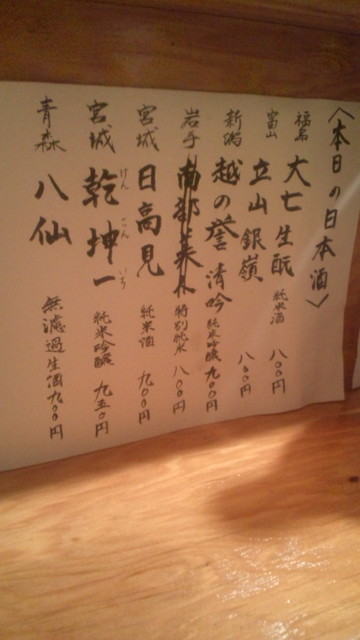 〈本日の日本酒〉
福島 大七 生酛 純米酒 八〇〇円
富山 立山 銀嶺 八〇〇円
新潟 越の誉 清吟 純米吟醸 九〇〇円
岩手 南部美人 特別純米 八〇〇円
宮城 日高見 純米酒 九〇〇円
宮城 乾坤一 けん こん いち 純米吟醸 九五〇円
青森 八仙 無濾過生酒 九〇〇円